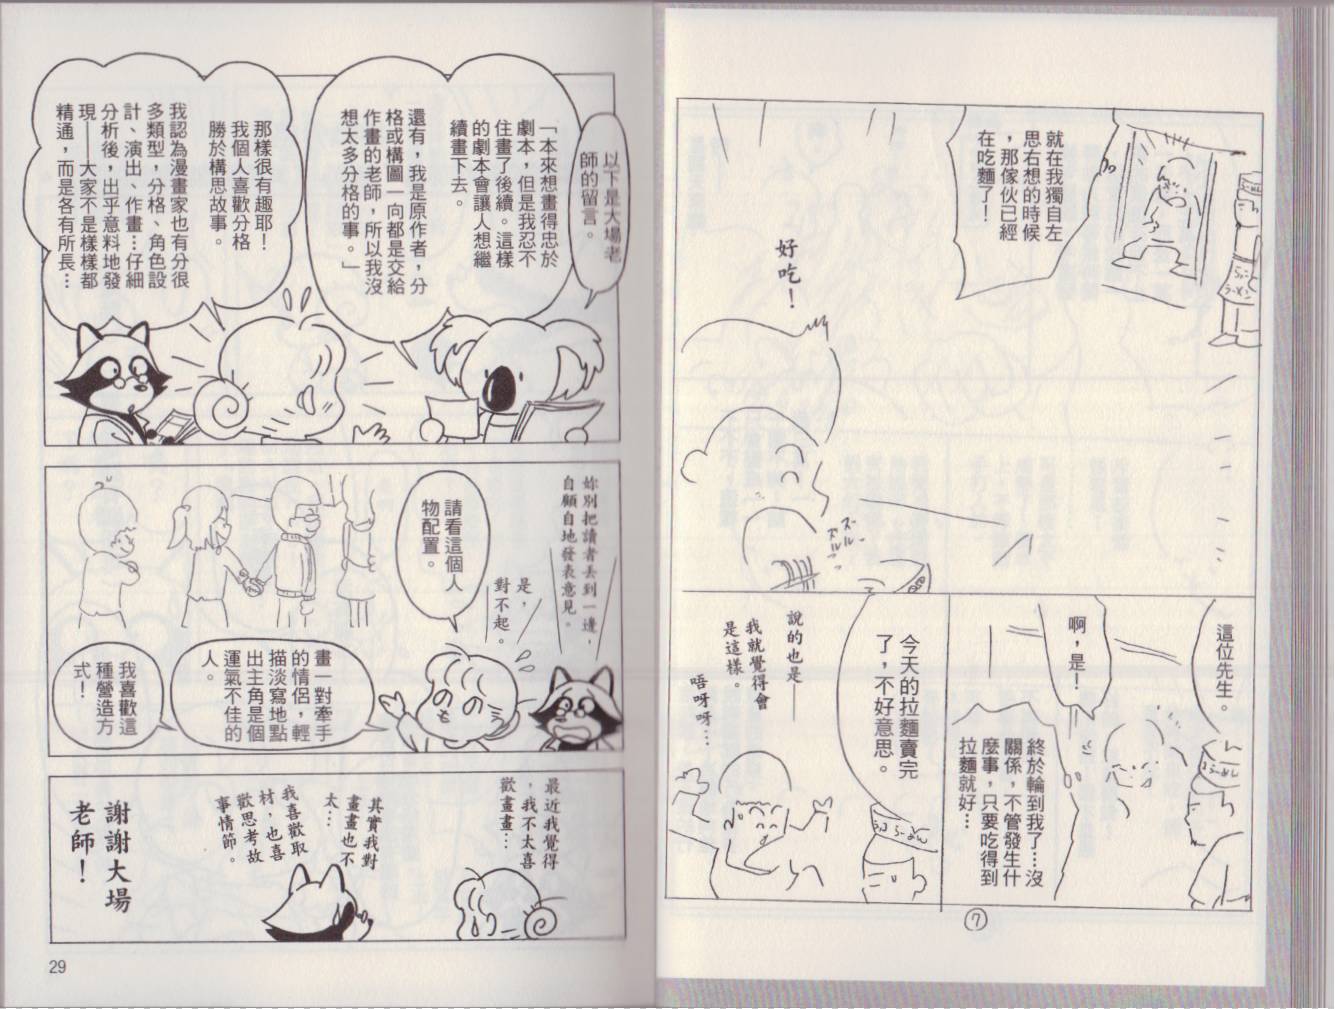 就在我獨自左
思右想的時候
，那傢伙已經
在吃麵了！
好吃！
ズー
ズルルー
ズルルッ
這位先生。
啊，是！
終於輪到我了…沒
關係，不管發生什
麼事，只要吃得到
拉麵就好…
今天的拉麵賣完
了，不好意思。
說的也是——
我就覺得會
是這樣。
唔呀呀…
⑦
以下是大場老
師的留言。
「本來想畫得忠於
劇本，但是我忍不
住畫了後續。這樣
的劇本會讓人想繼
續畫下去。
還有，我是原作者，分
格或構圖一向都是交給
作畫的老師，所以我沒
想太多分格的事。」
那樣很有趣耶！
我個人喜歡分格
勝於構思故事。
我認為漫畫家也有分很
多類型，分格、角色設
計、演出、作畫…仔細
分析後，出乎意料地發
現——大家不是樣樣都
精通，而是各有所長…
妳別把讀者丟到一邊，
自顧自地發表意見。
是，
對不起。
請看這個人
物配置。
畫一對牽手
的情侶，輕
描淡寫地點
出主角是個
運氣不佳的
人。
我喜歡這
種營造方
式！
最近我覺得
，我不太喜
歡畫畫…
其實我對
畫畫也不
太…
我喜歡取
材，也喜
歡思考故
事情節。
謝謝大場
老師！
29